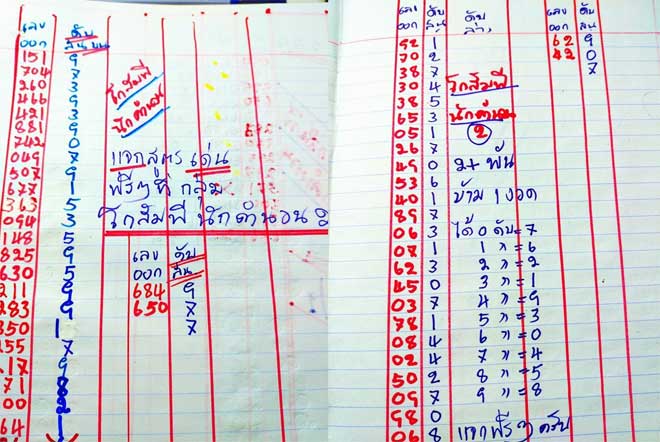 เลข ดับ
ออก สิบ บน
151 9
704 7
260 3
466 9
421 3
881 9
742 0
049 7
507 9
677 1
363 5
094 3
148 5
825 9
630 5
211 9
283 9
350 1
255 7
217 9
71
00
64
โกสัมพี
นักคำนวน
แจกสูตร เด่น
ฟรีๆที่ กลุ่ม
โกสัมพี นักคำนวน 2
เลข ดับ
ออก สิบ
684 9
650 7
7
เลข ดับ ดับ
ออก ล่าง
92 1
70 2
38 7
30 4
38 5
65 3
05 1
26 7
49 0
53 6
40 1
89 7
06 3
07 1
62 3
45 0
03 7
78 1
08 4
02 4
50 2
09 7
98 0
06 8
โกสัมพี
นักคำนวน
2
2+ พัน
ข้าม 1 งวด
ได้ 0 ดับ = 7
1 " = 6
2 " = 2
3 " = 1
4 " = 9
5 " = 3
6 " = 0
7 " = 4
8 " = 5
9 " = 8
แจกฟรีๆ ครับ
เลข ดับ
ออก
62 9
42 0
7